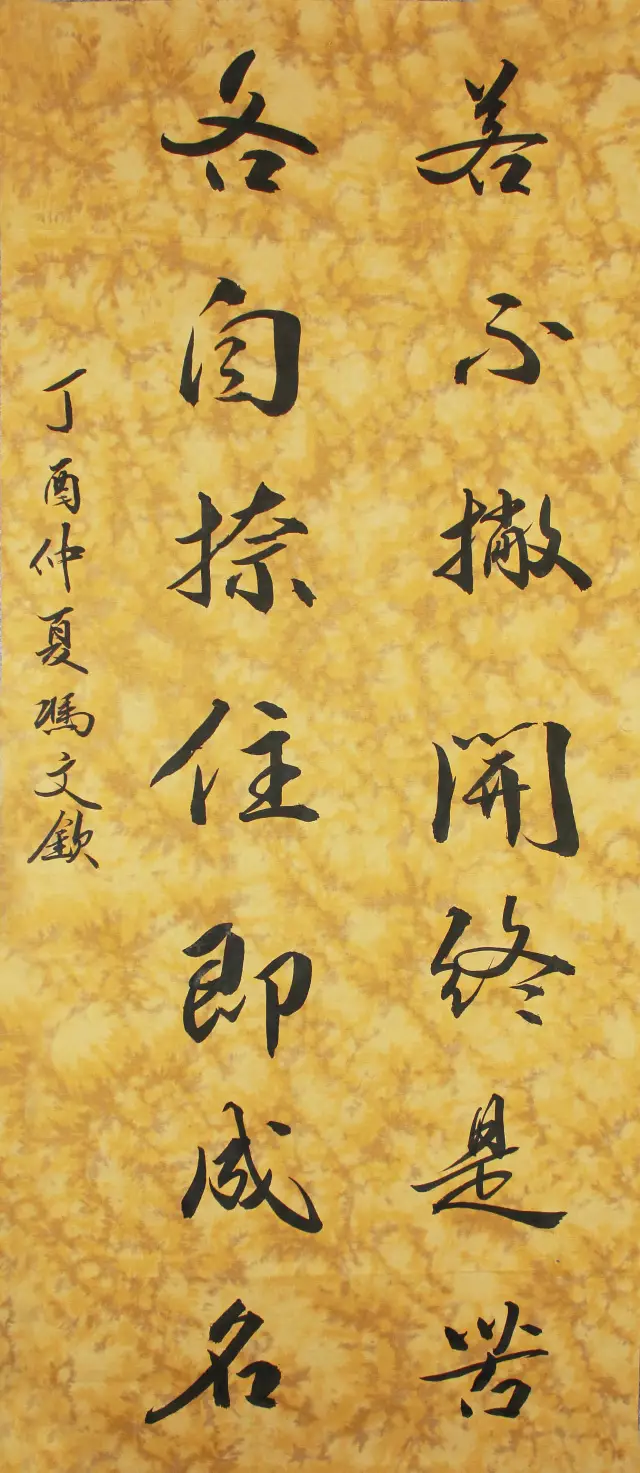 若不撇開終是苦
各自捺住即成名
丁酉仲夏馮文欽